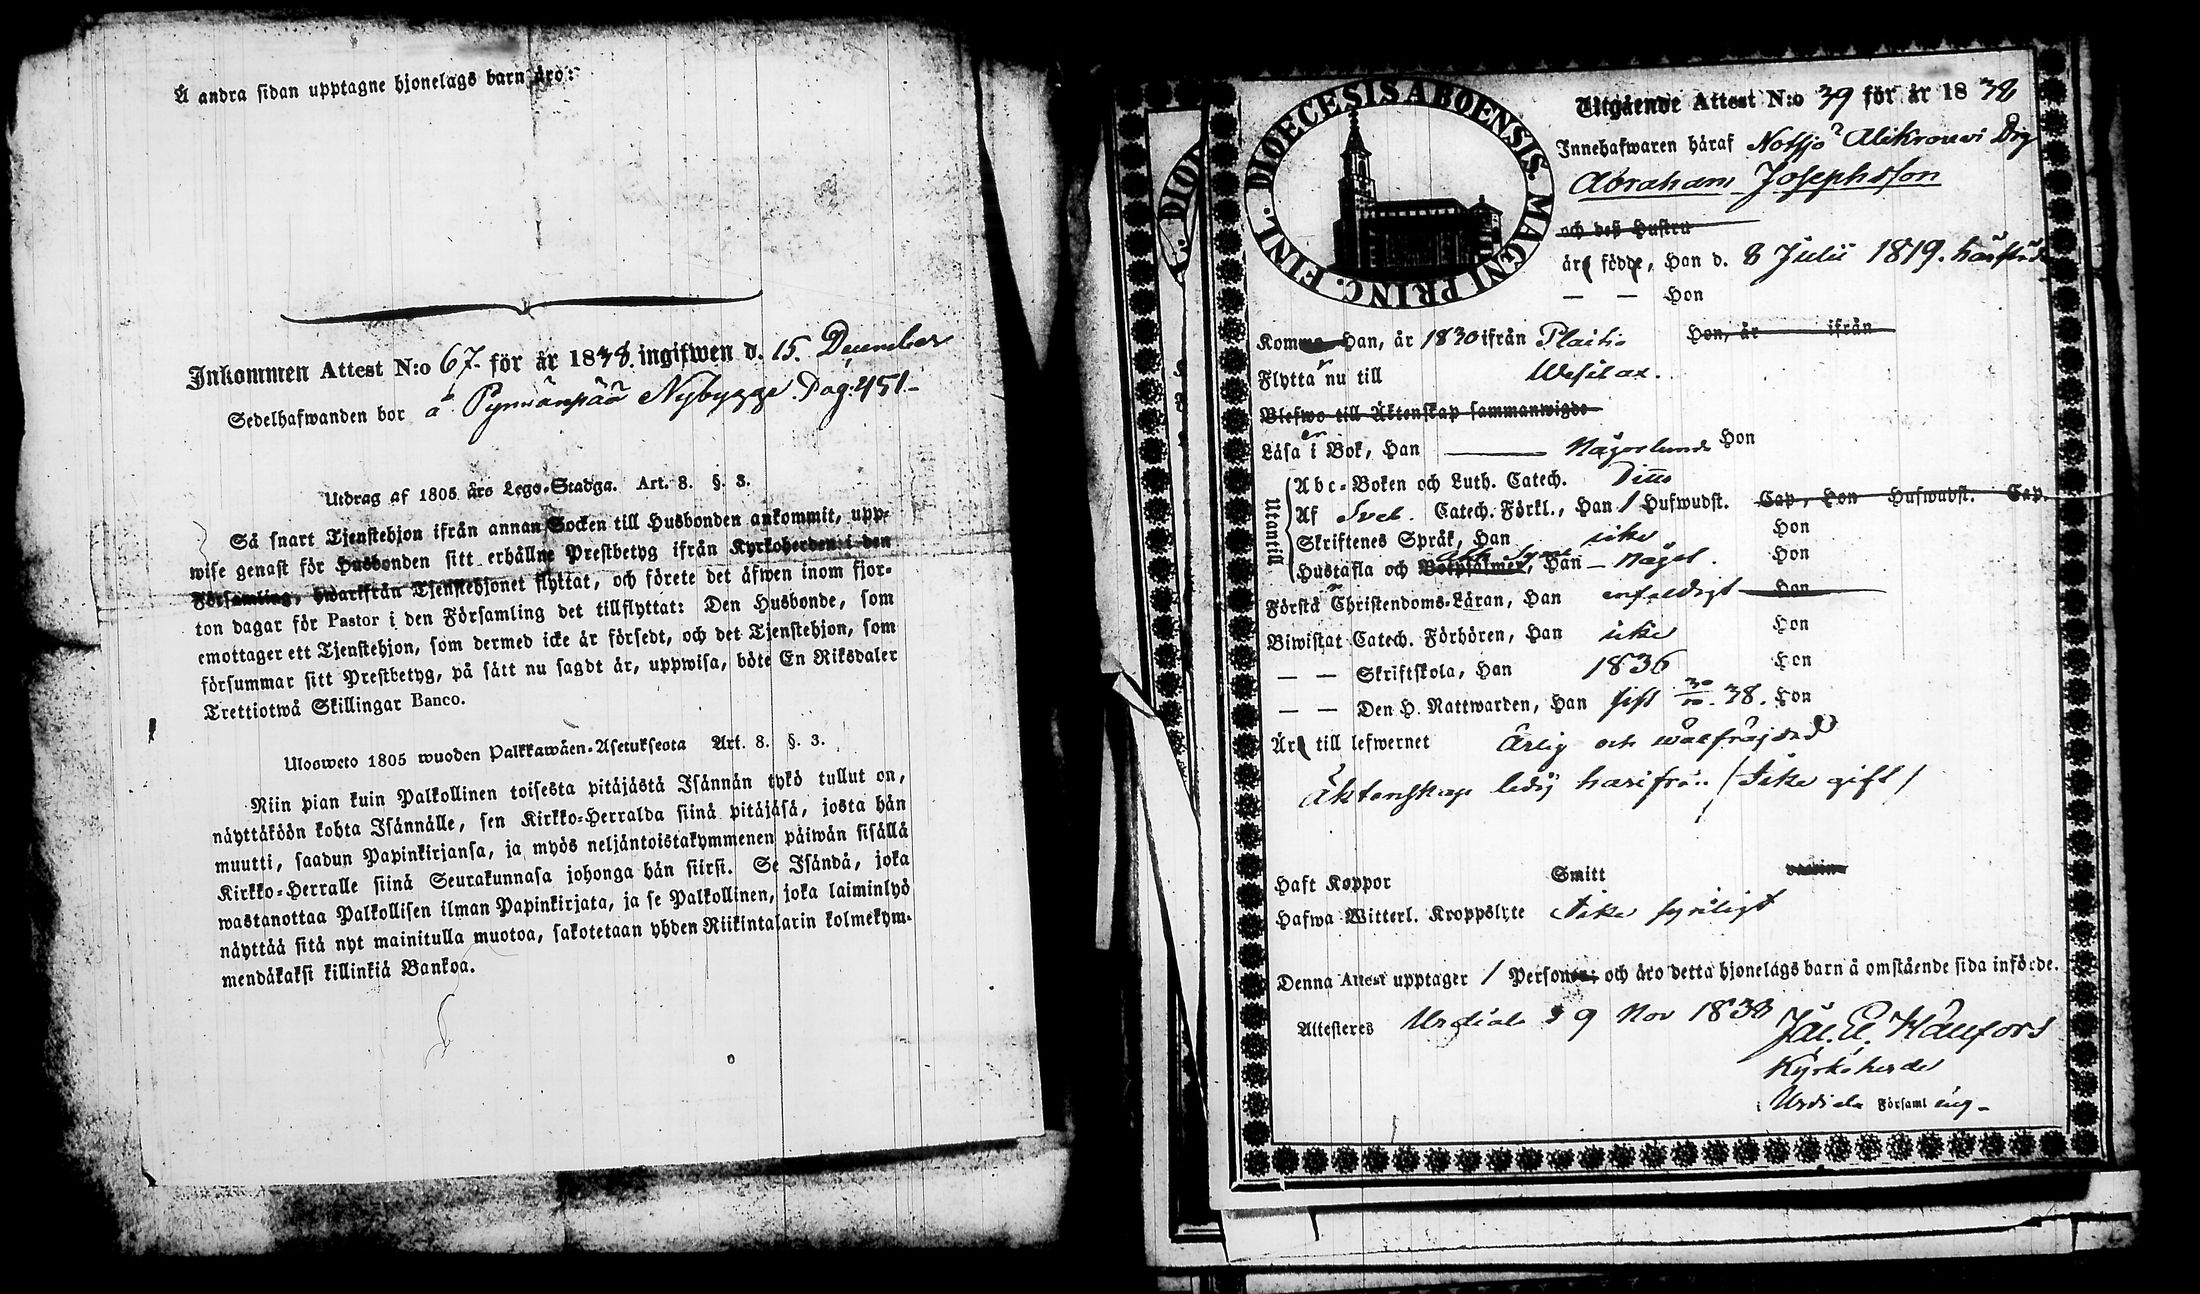 Å andra sidan upptagne hjonelags barn äro:
Inkommen Attest N:o 67 för år 1838. ingifwen d. 15 December
Sedelhafwanden bor å Nybygge Pag: 451
Utdrag af 1805 års Lego-Stadga. Art. 8. §. 3.
Så snart Tjenstehjon ifrån annan Socken till Husbonden ankommit, upp-
wise genast för Husbonden sitt erhållne Prestbetyg ifrån Kyrkoherden i den
Församling, hwarifrån Tjenstehjonet flyttat, och förete det äfwen inom fjor-
ton dagar för Pastor i den Församling det tillflyttat: Den Husbonde, som
emottager ett Tjenstehjon, som dermed icke är försedt, och det Tjenstehjon, som
försummar sitt Prestbetyg, på sätt nu sagdt är, uppwisa, böte En Riksdaler
Trettiotwå Skillingar Banco.
Ulosweto 1805 wuoden Palkkawäen-Asetuksesta Art. 8. §. 3.
Niin pian kuin Palkollinen toisesta pitäjästä Isännän tykö tullut on,
näyttäköön kohta Isännälle, sen Kirkko-Herralda siinä pitäjäsä, josta hän
muutti, saadun Papinkirjansa, ja myös neljäntoistakymmenen päiwän sisällä
Kirkko-Herralle siinä Seurakunnasa johonga hän siirsi. Se Isändä, joka
wastanottaa Palkollisen ilman Papinkirjata, ja se Palkollinen, joka laiminlyö
näyttää sitä nyt mainitulla muotoa, sakotetaan yhden Riikintalarin kolmekym-
mendäkaksi killinkiä Bankoa.
DIOECESIS ABOENSIS. MAGNI PRINC. FINL.
Utgående Attest N:o 39 för år 1838
Innehafwaren häraf Notsjö Alikrouvi Drg
Abraham Josephsson
och deß Hustru
äre födde, Han d. 8 Julii 1819. härstädes
— — Hon
Komne Han, år 1830 ifrån Hon, år ifrån
Flyttar nu till Wesilax.
Blefwo till Äktenskap sammanwigde
Läser i Bok, Han — Någorlunda Hon
Utantill
Abc-Boken och Luth. Catech. Ditto
Af Sveb. Catech. Förkl., Han 1 Hufwudst. Cap, Hon Hufwudst. Cap.
Skriftenes Språk, Han icke Hon
Hustafla och Botpsalmer, Han — något. Hon
Förstår Christendoms-Läran, Han enfaldigt Hon
Biwistat Catech. Förhören, Han icke Hon
— — Skriftskola, Han 1836 Hon
— — Den H. Nattwarden, Han sist 30/10 38. Hon
Är till lefwernet Ärlig och wälfräjdad
Äktenskaps ledig härifrån (icke gift)
Haft Koppor Smitt
Hafwa Witterl. Kroppslyte icke synligt
Denna Attest upptager 1 Personer; och äro detta hjonelags barn å omstående sida införde.
Attesteres Urdiala 19 Nov 1838
Kyrkoherde
i Urdiala Församling